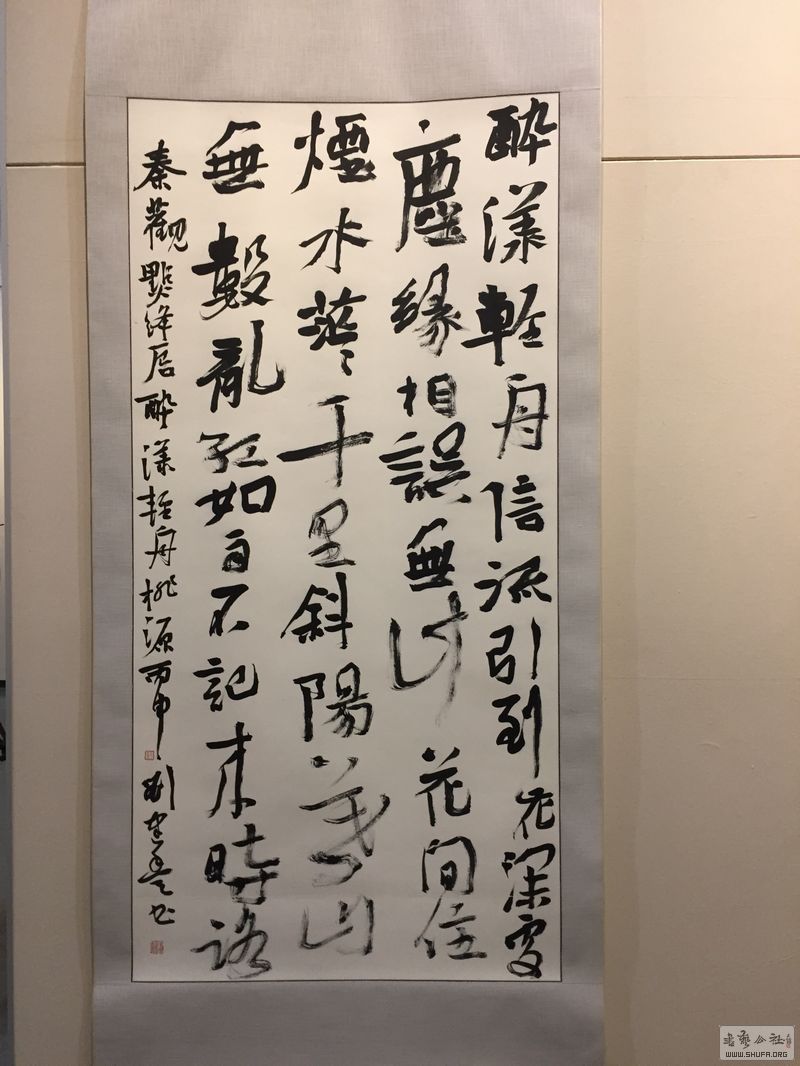 醉漾輕舟信流引到花深處
塵緣相誤無計花間住
煙水茫〻千里斜陽暮山
無數亂紅如雨不記來時路
秦觀點絳唇醉漾輕舟桃源丙申 劉 書
书艺公社
WWW.SHUFA.ORG